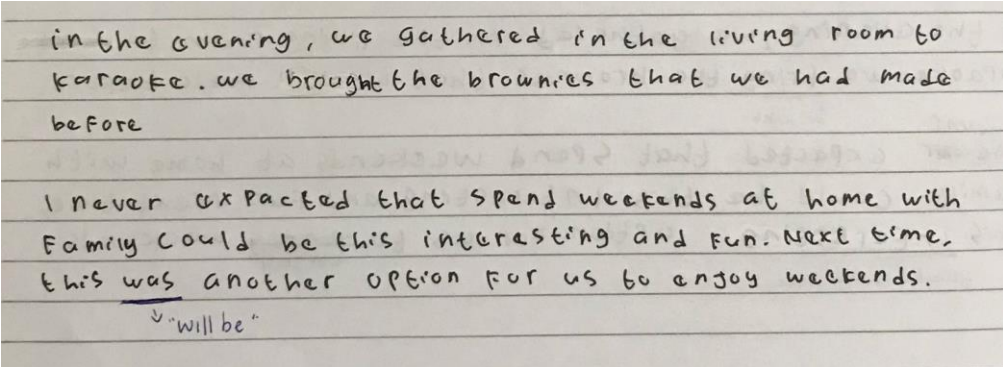 in the evening, we gathered in the living room to
karaoke. we brought the brownies that we had made
before
I never expacted that spend weekends at home with
Family could be this interesting and fun. Next time,
this was another option for us to enjoy weekends.
"will be"